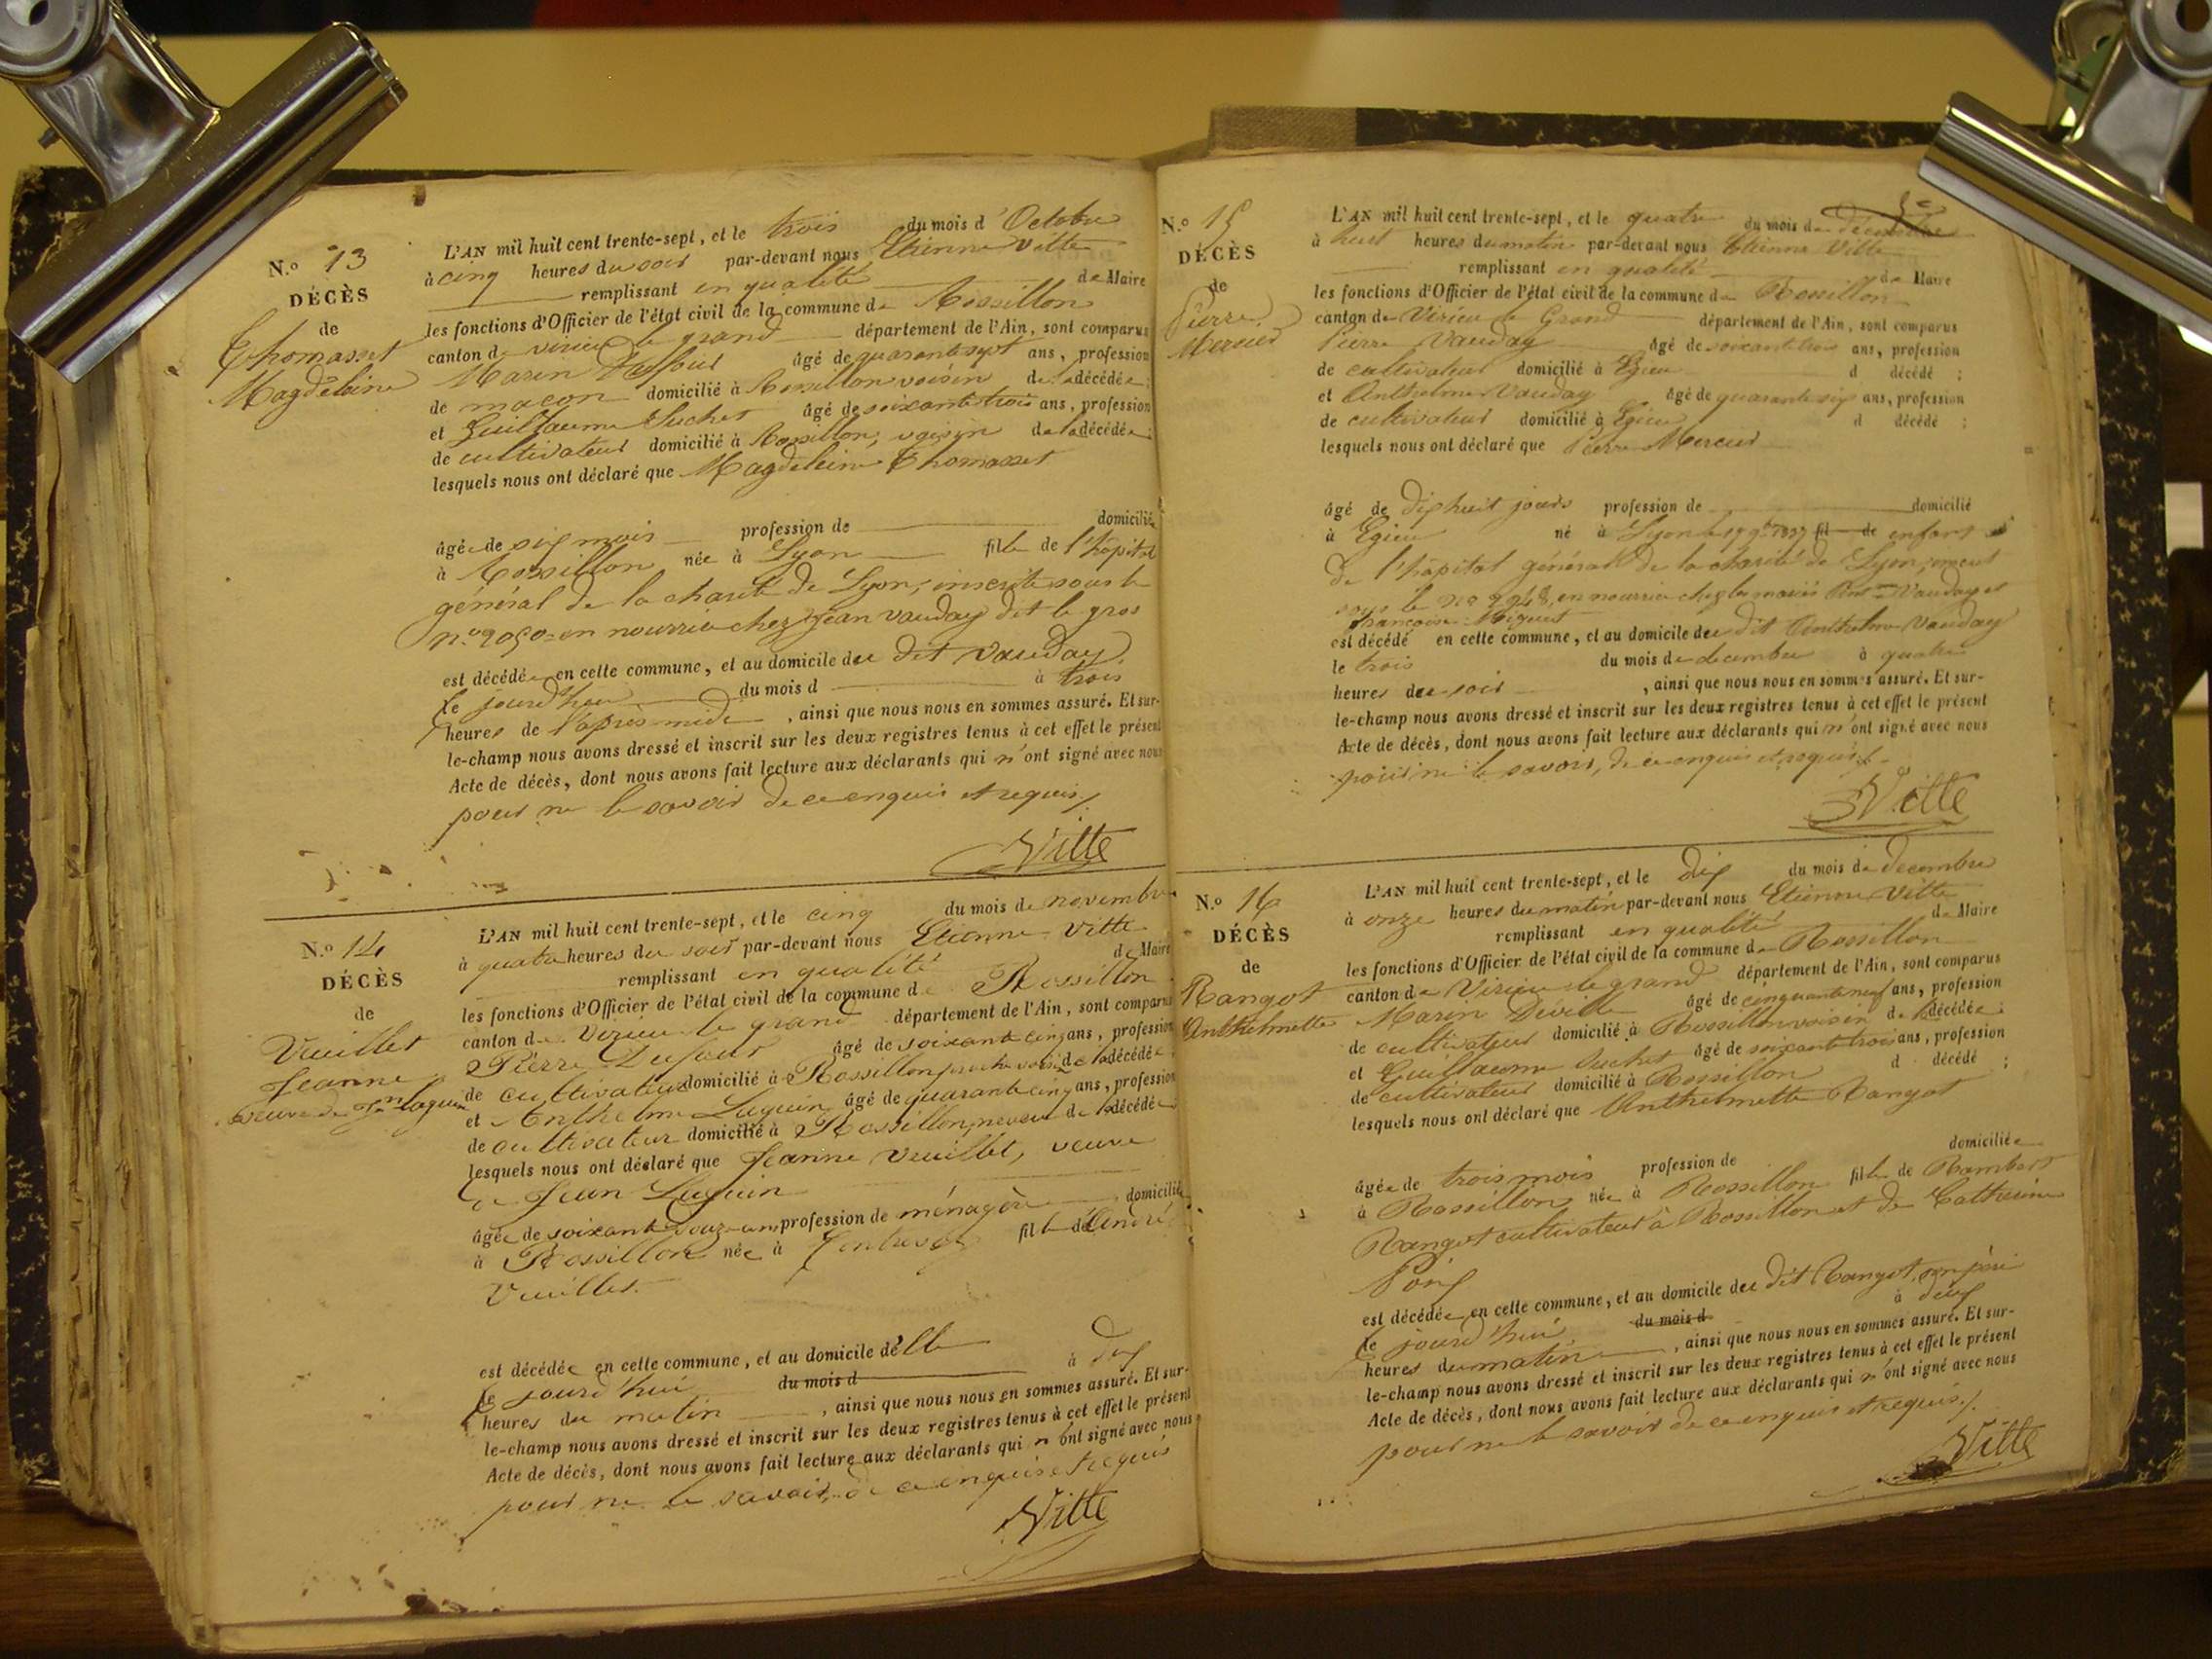 N.º 13
DÉCÈS
de
Thomasset
Magdeleine
L'AN mil huit cent trente-sept, et le trois du mois d'Octobre
à cinq heures du soir par-devant nous Etienne Vitte
remplissant en qualité de Maire
les fonctions d'Officier de l'état civil de la commune de Rossillon
canton de virieu le grand département de l'Ain, sont comparus
Marin Dufour âgé de quarante sept ans, profession
de macon domicilié à Rossillon voisin de la décédée;
et Guillaume Suchet âgé de soixante trois ans, profession
de cultivateur domicilié à Rossillon, voisin de la décédée;
lesquels nous ont déclaré que Magdeleine Thomasset
âgée de six mois profession de domicilié
à Rossillon née à Lyon fille de l'hôpital
général de la charité de Lyon, inscrite sous le
nº 2050 en nourrice chez Jean Vauday dit le gros
est décédée en cette commune, et au domicile du dit Vauday
le jourd'hui du mois d à trois
heures de l'après midi, ainsi que nous nous en sommes assuré. Et sur-
le-champ nous avons dressé et inscrit sur les deux registres tenus à cet effet le présent
Acte de décès, dont nous avons fait lecture aux déclarants qui n'ont signé avec nous
pour ne le savoir de ce enquis et requis /.
Vitte
N.º 14
DÉCÈS
de
Vuillet
Jeanne
veuve de Jn laguin
L'AN mil huit cent trente-sept, et le cinq du mois de novembre
à quatre heures du soir par-devant nous Etienne Vitte
remplissant en qualité de Maire
les fonctions d'Officier de l'état civil de la commune de Rossillon
canton de Virieu le grand département de l'Ain, sont comparus
Pierre Dufour âgé de soixante cinq ans, profession
de cultivateur domicilié à Rossillon proche voisin de la décédée;
et Anthelme Laguin âgé de quarante cinq ans, profession
de cultivateur domicilié à Rossillon, neveu de la décédée;
lesquels nous ont déclaré que Jeanne Vuillet, veuve
de Jean Laguin
âgée de soixante douze ans profession de ménagère domiciliée
à Rossillon née à fille de André
Vuillet.
est décédée en cette commune, et au domicile d'elle
le jourd'hui du mois d à dix
heures du matin, ainsi que nous nous en sommes assuré. Et sur-
le-champ nous avons dressé et inscrit sur les deux registres tenus à cet effet le présent
Acte de décès, dont nous avons fait lecture aux déclarants qui n'ont signé avec nous
pour ne le savoir, de ce enquis et requis
Vitte
N.º 15
DÉCÈS
de
Pierre
Mercier
L'AN mil huit cent trente-sept, et le quatre du mois de décembre
à huit heures du matin par-devant nous Etienne Vitte
remplissant en qualité de Maire
les fonctions d'Officier de l'état civil de la commune de Rossillon
canton de Virieu le Grand département de l'Ain, sont comparus
Pierre Vauday âgé de soixante trois ans, profession
de cultivateur domicilié à Egieu d décédé;
et Anthelme Vauday âgé de quarante six ans, profession
de cultivateur domicilié à Egieu d décédé;
lesquels nous ont déclaré que Pierre Mercier
âgé de dix huit jours profession de domicilié
à Egieu né à Lyon le 1837 fil de enfant
de l'hôpital général de la charité de Lyon, inscrit
sous le nº 2248, en nourrice chez les mariés Vauday et
françoise
est décédé en cette commune, et au domicile du dit Anthelme Vauday
le trois du mois de decembre à quatre
heures du soir, ainsi que nous nous en sommes assuré. Et sur-
le-champ nous avons dressé et inscrit sur les deux registres tenus à cet effet le présent
Acte de décès, dont nous avons fait lecture aux déclarants qui n'ont signé avec nous
pour ne le savoir, de ce enquis et requis /.
Vitte
N.º 16
DÉCÈS
de
Rangot
Anthelmette
L'AN mil huit cent trente-sept, et le dix du mois de décembre
à onze heures du matin par-devant nous Etienne Vitte
remplissant en qualité de Maire
les fonctions d'Officier de l'état civil de la commune de Rossillon
canton de Virieu le grand département de l'Ain, sont comparus
Marin Déville âgé de cinquante neuf ans, profession
de cultivateur domicilié à Rossillon voisin de la décédée;
et Guillaume Suchet âgé de soixante trois ans, profession
de cultivateur domicilié à Rossillon d décédé;
lesquels nous ont déclaré que Anthelmette Rangot
âgée de trois mois profession de domiciliée
à Rossillon née à Rossillon fille de Rambert
Rangot cultivateur à Rossillon et de Catherine
est décédée en cette commune, et au domicile du dit Rangot, son père
le jourd'hui du mois d à deux
heures du matin, ainsi que nous nous en sommes assuré. Et sur-
le-champ nous avons dressé et inscrit sur les deux registres tenus à cet effet le présent
Acte de décès, dont nous avons fait lecture aux déclarants qui n'ont signé avec nous
pour ne le savoir de ce enquis et requis /.
Vitte